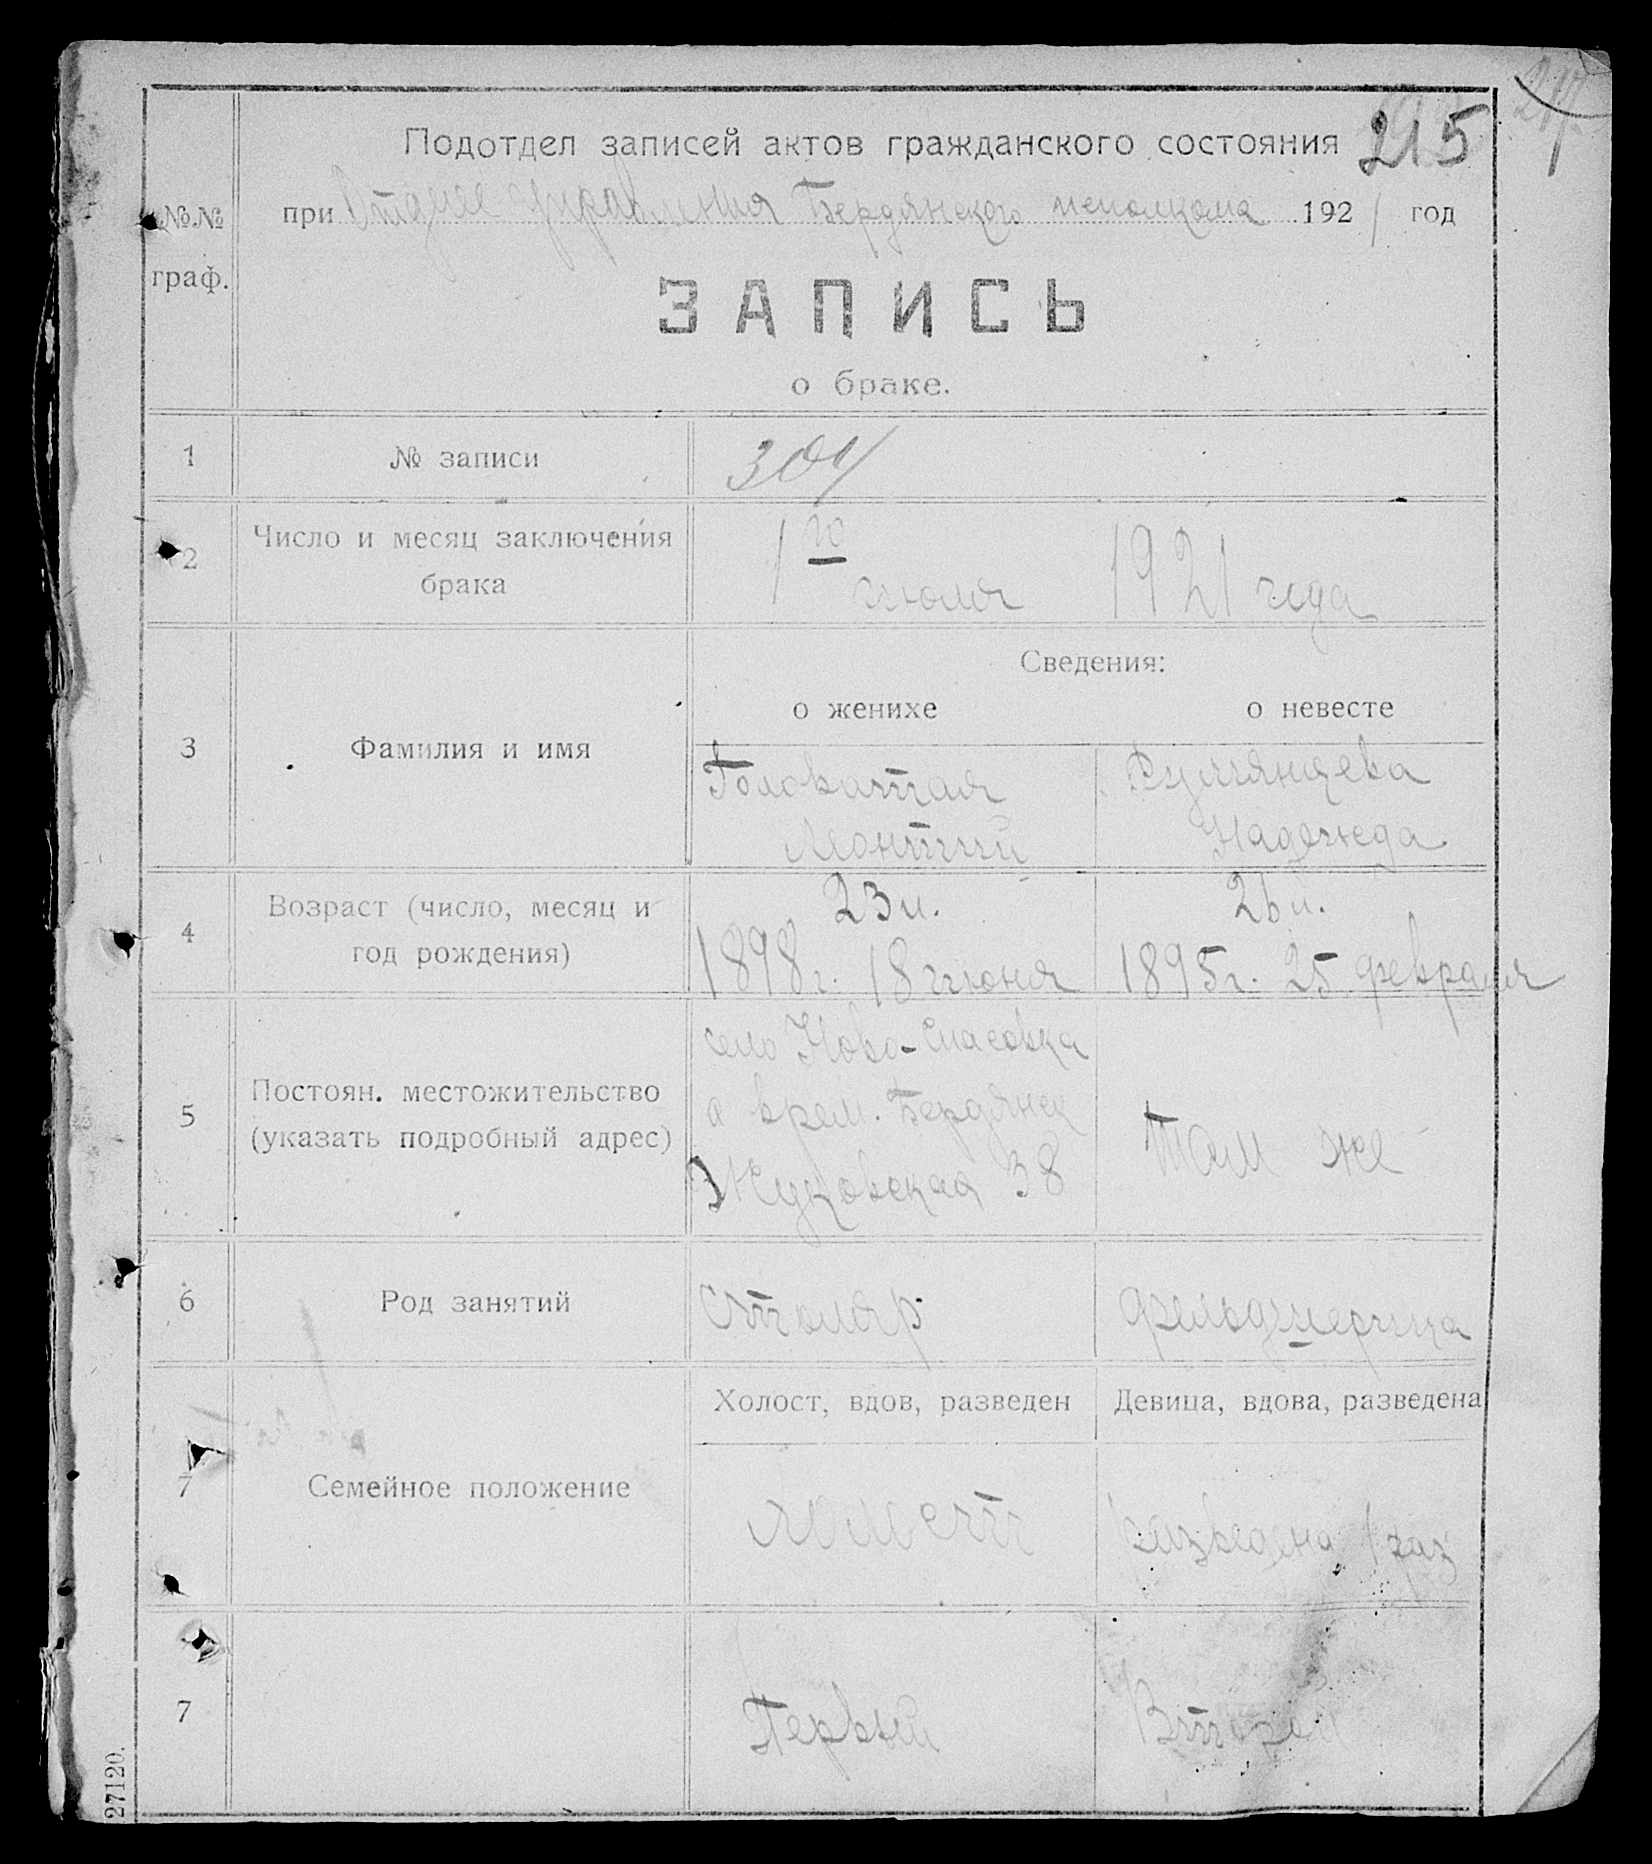 215
Подотдел записей актов гражданского состояния
при Отделе управления Бердянского исполкома 1921 год
№№ граф.
ЗАПИСЬ
о браке.
1 № записи 304
2 Число и месяц заключения брака 1го июля 1921 года
Сведения:
о женихе о невесте
3 Фамилия и имя
Головатая Румянцева
Леонтий Надежда
4 Возраст (число, месяц и год рождения)
23 л. 26 л.
1898 г. 18 июня 1895 г. 25 февраля
5 Постоян. местожительство (указать подробный адрес)
село Ново-Спасовка
а врем. Бердянск Там же
Жуковская 38
6 Род занятий столяр фельдшерица
Холост, вдов, разведен Девица, вдова, разведена
7 Семейное положение
холост разведена 1 раз
7 Первый Второй
27120.